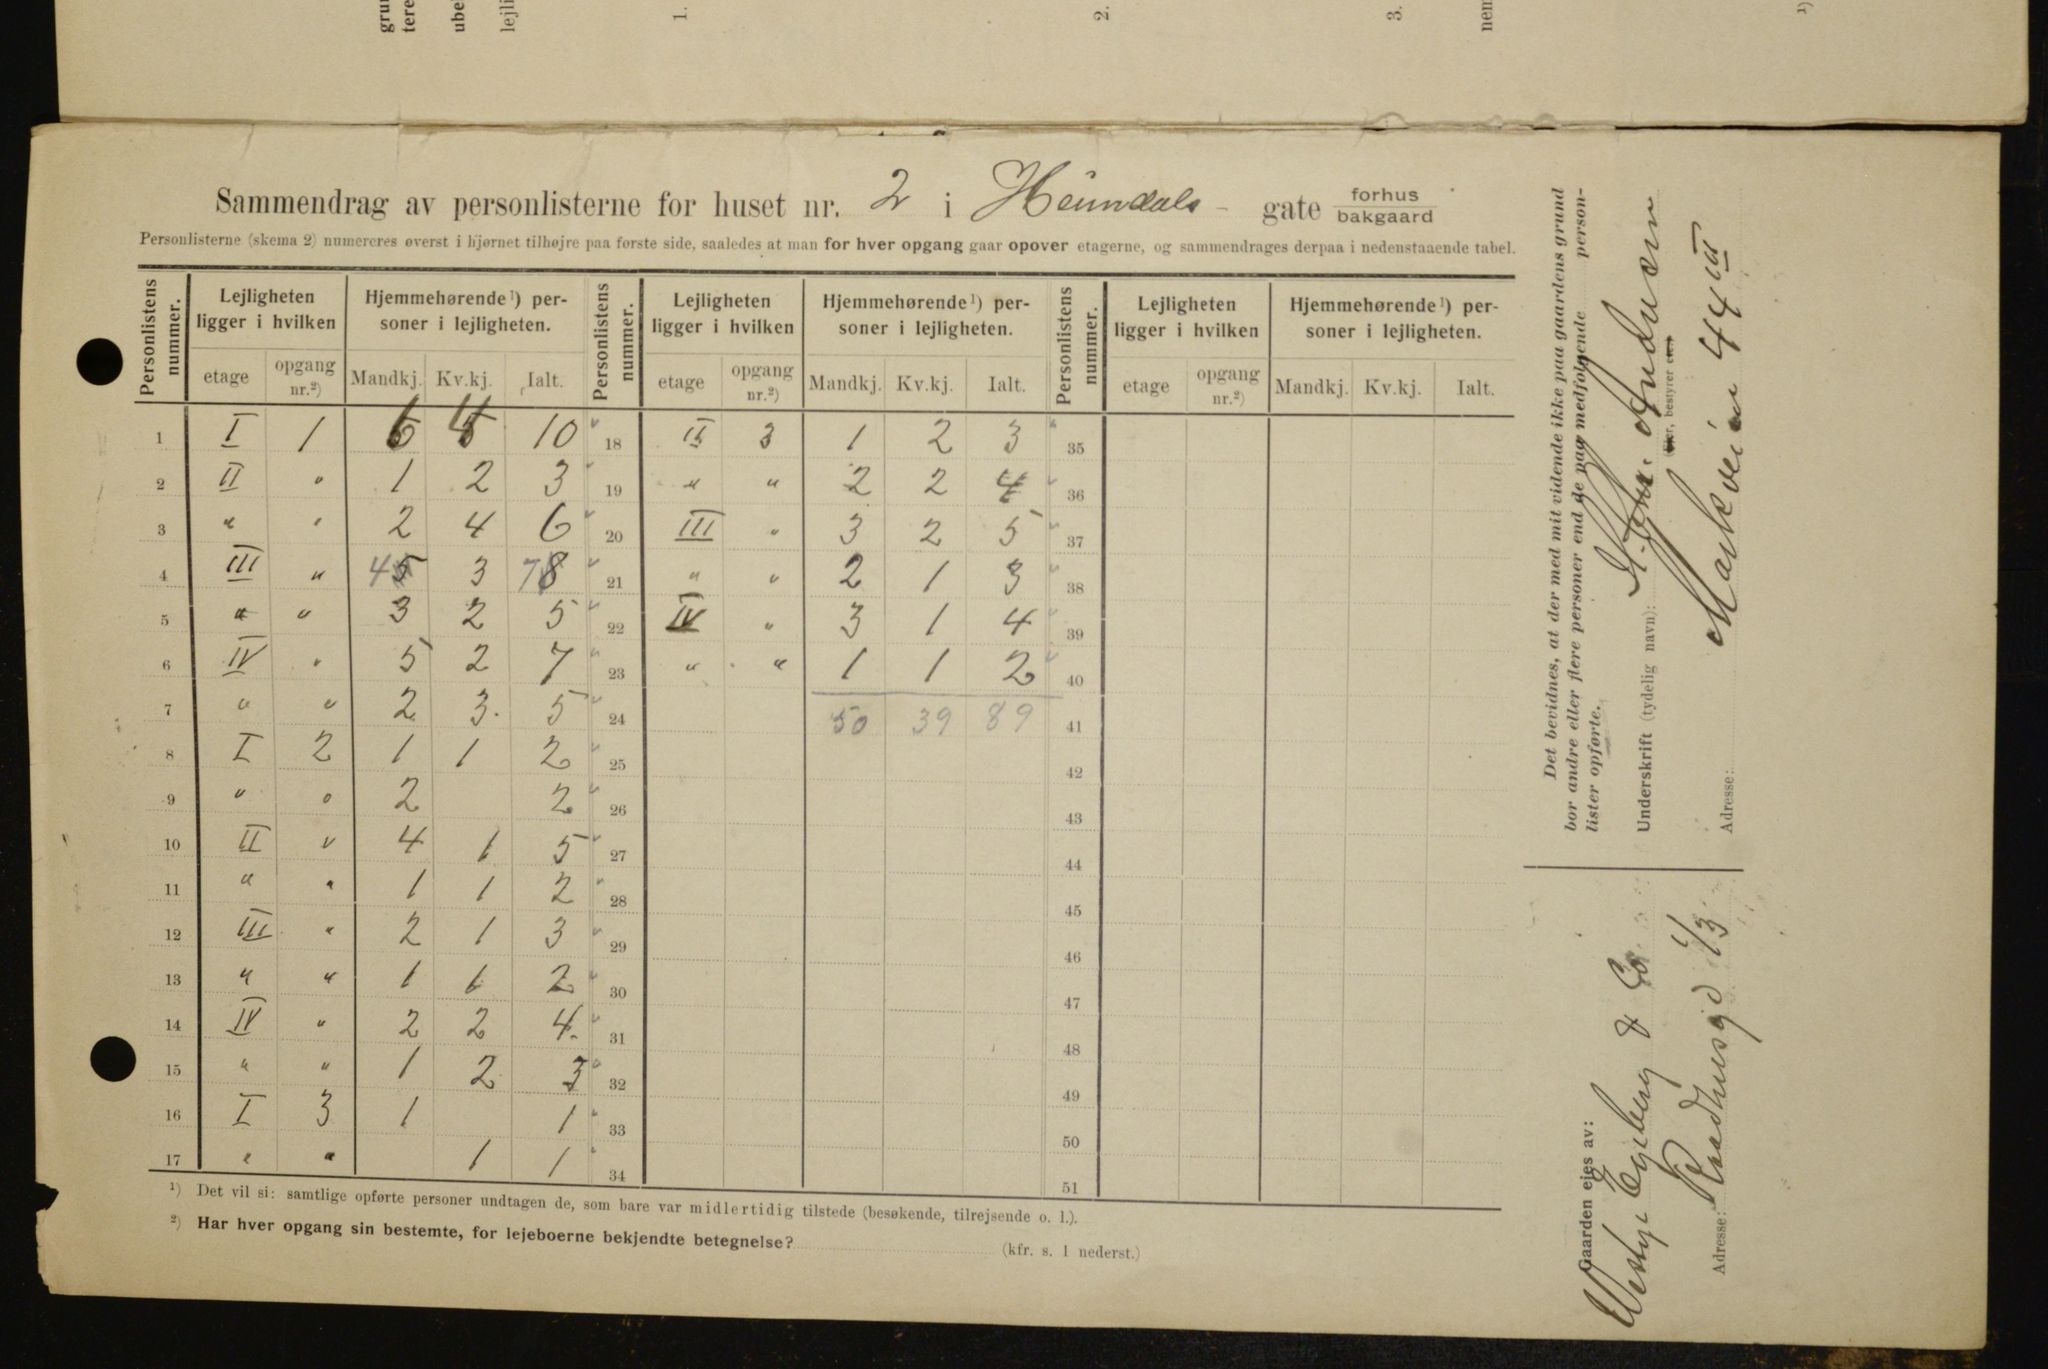 grun
tere
ube
lejli
1.
2.
3.
nem
1)
Sammendrag av personlisterne for huset nr. 2 i Heimdals - gate forhus bakgaard
Personlisterne (skema 2) numereres øverst i hjørnet tilhøjre paa første side, saaledes at man for hver opgang gaar opover etagerne, og sammendrages derpaa i nedenstaaende tabel.
Personlistens nummer. Lejligheten ligger i hvilken Hjemmehørende 1) personer i lejligheten. Personlistens nummer. Lejligheten ligger i hvilken Hjemmehørende 1) personer i lejligheten. Personlistens nummer. Lejligheten ligger i hvilken Hjemmehørende 1) personer i lejligheten.
etage opgang nr. 2) Mandkj. Kv.kj. Ialt. etage opgang nr. 2) Mandkj. Kv.kj. Ialt. etage opgang nr. 2) Mandkj. Kv.kj. Ialt.
1 I 1 6 4 10 18 II 3 1 2 3 35
2 II " 1 2 3 19 " " 2 2 4 36
3 " " 2 4 6 20 III " 3 2 5 37
4 III " 4 5 3 7 8 21 " " 2 1 3 38
5 " " 3 2 5 22 IV " 3 1 4 39
6 IV " 5 2 7 23 " " 1 1 2 40
7 " " 2 3. 5 24 50 39 89 41
8 I 2 1 1 2 25 42
9 " " 2 2 26 43
10 II " 4 1 5 27 44
11 " " 1 1 2 28 45
12 III " 2 1 3 29 46
13 " " 1 1 2 30 47
14 IV " 2 2 4. 31 48
15 " " 1 2 3 32 49
16 I 3 1 1 33 50
17 " " 1 1 34 51
1) Det vil si: samtlige opførte personer undtagen de, som bare var midlertidig tilstede (besøkende, tilrejsende o. l.).
2) Har hver opgang sin bestemte, for lejeboerne bekjendte betegnelse? (kfr. s. 1 nederst.)
Det bevidnes, at der med mit vidende ikke paa gaardens grund
bor andre eller flere personer end de paa medfølgende personlister opførte.
Underskrift (tydelig navn): Andersen
(Ejer, bestyrer etc.)
Adresse: Markveien 44 III
Gaarden ejes av:
Westye Egeberg & Co.
Adresse: Raadhusgd 1/3